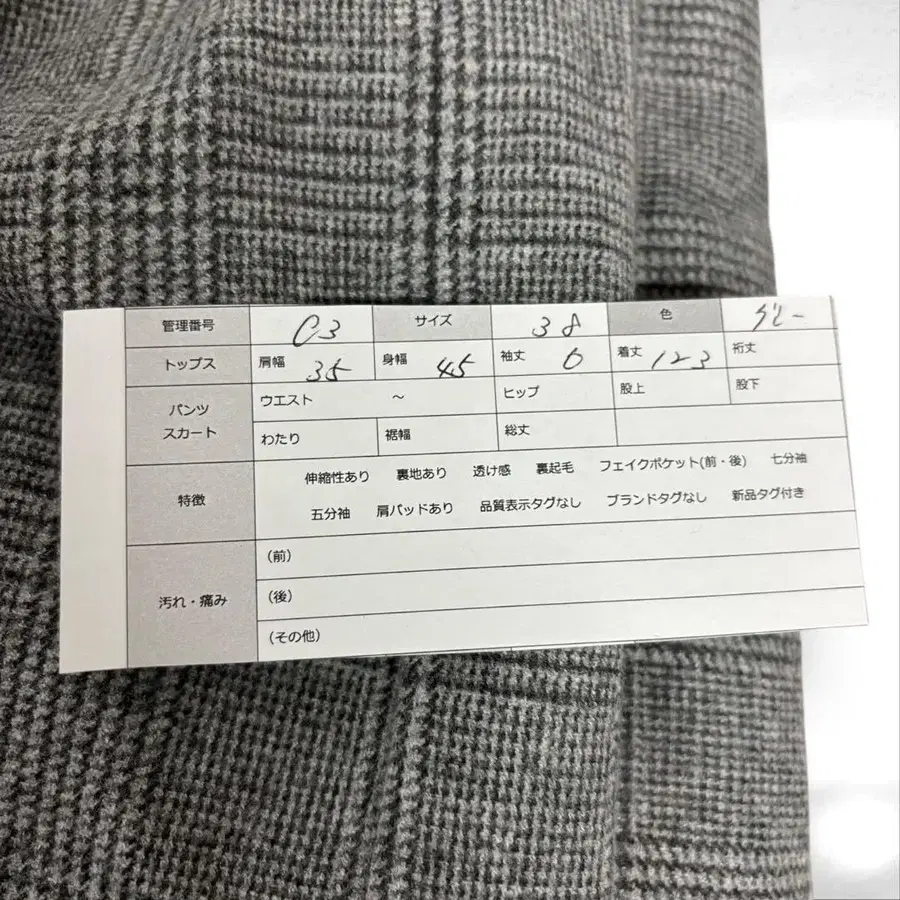 管理番号 C3 サイズ 38 色 グレー
トップス 肩幅 35 身幅 45 袖丈 0 着丈 123 裄丈
パンツ スカート ウエスト ～ ヒップ 股上 股下
わたり 裾幅 総丈
特徴 伸縮性あり 裏地あり 透け感 裏起毛 フェイクポケット(前・後) 七分袖
五分袖 肩パッドあり 品質表示タグなし ブランドタグなし 新品タグ付き
汚れ・痛み (前)
(後)
(その他)